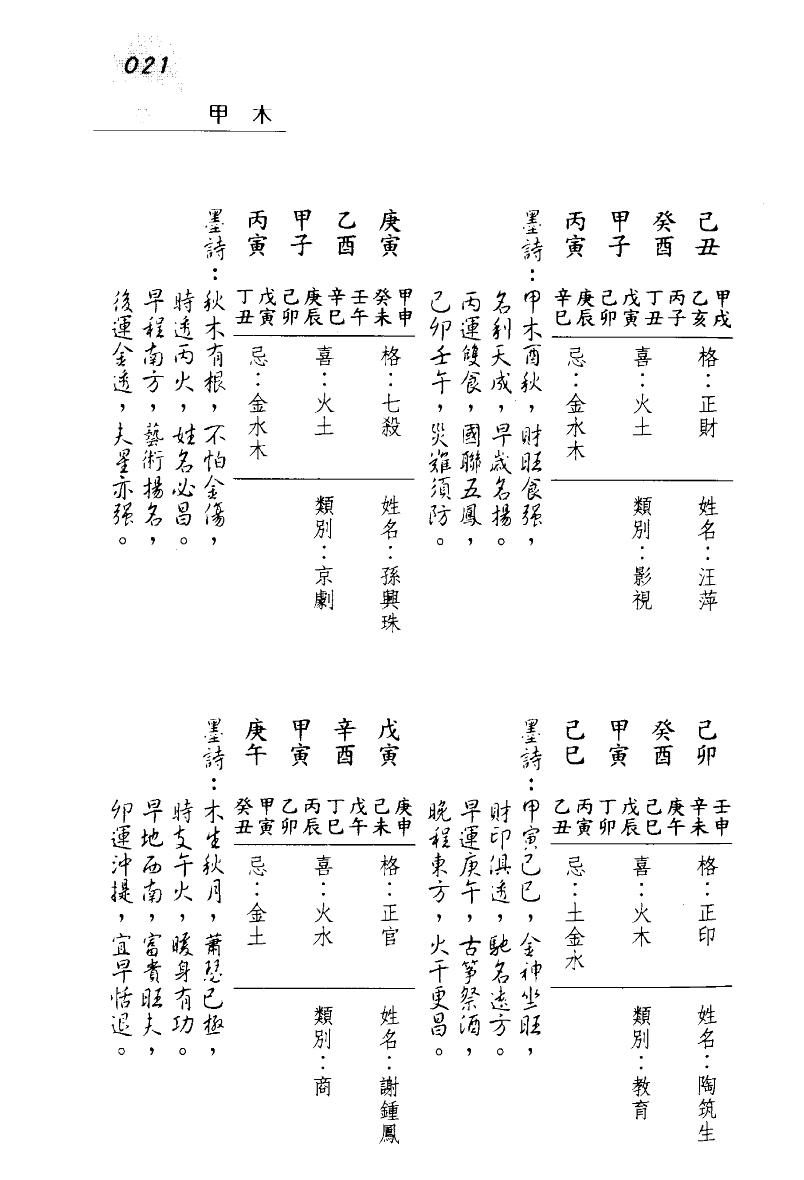 021
甲木
己丑
癸酉
甲子
丙寅
甲戌
乙亥
丙子
丁丑
戊寅
己卯
庚辰
辛巳
格：正財
喜：火土
忌：金水木
姓名：汪萍
類別：影視
墨詩：甲木酉秋，財旺食强，
名利天成，早歲名揚。
丙運雙食，國聯五鳳，
己卯壬午，災難須防。
庚寅
乙酉
甲子
丙寅
甲申
癸未
壬午
辛巳
庚辰
己卯
戊寅
丁丑
格：七殺
喜：火土
忌：金水木
姓名：孫興珠
類別：京劇
墨詩：秋木有根，不怕金傷，
時透丙火，姓名必昌。
早程南方，藝術揚名，
後運金透，夫星亦强。
己卯
癸酉
甲寅
己巳
壬申
辛未
庚午
己巳
戊辰
丁卯
丙寅
乙丑
格：正印
喜：火木
忌：土金水
姓名：陶筑生
類別：教育
墨詩：甲寅己巳，金神坐旺，
財印俱透，馳名遠方。
早運庚午，古箏祭酒，
晚程東方，火干更昌。
戊寅
辛酉
甲寅
庚午
庚申
己未
戊午
丁巳
丙辰
乙卯
甲寅
癸丑
格：正官
喜：火水
忌：金土
姓名：謝鍾鳳
類別：商
墨詩：木生秋月，蕭瑟已極，
時支午火，暖身有功。
早地西南，富貴旺夫，
卯運沖提，宜早恬退。